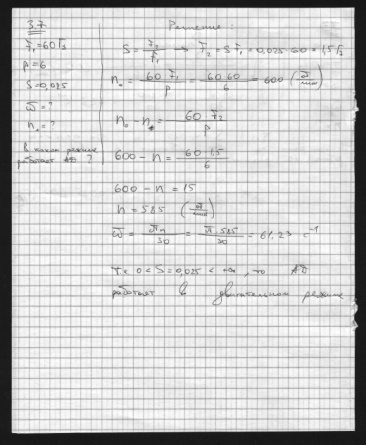 3.7
f₁=60Гц
p=6
S=0,025
ω=?
n₀=?
в каком режиме
работает АД ?
Решение:
S = f₂/f₁ → f₂ = S f₁ = 0,025·60 = 1,5 Гц
n₀ = 60 f₁/p = 60·60/6 = 600 (об/мин)
n₀ - n = 60 f₂/p
600 - n = 60·1,5/6
600 - n = 15
n = 585 (об/мин)
ω = πn/30 = π·585/30 = 61.23 c⁻¹
т.к 0 < S=0,025 < , то АД
работает в двигательном режиме